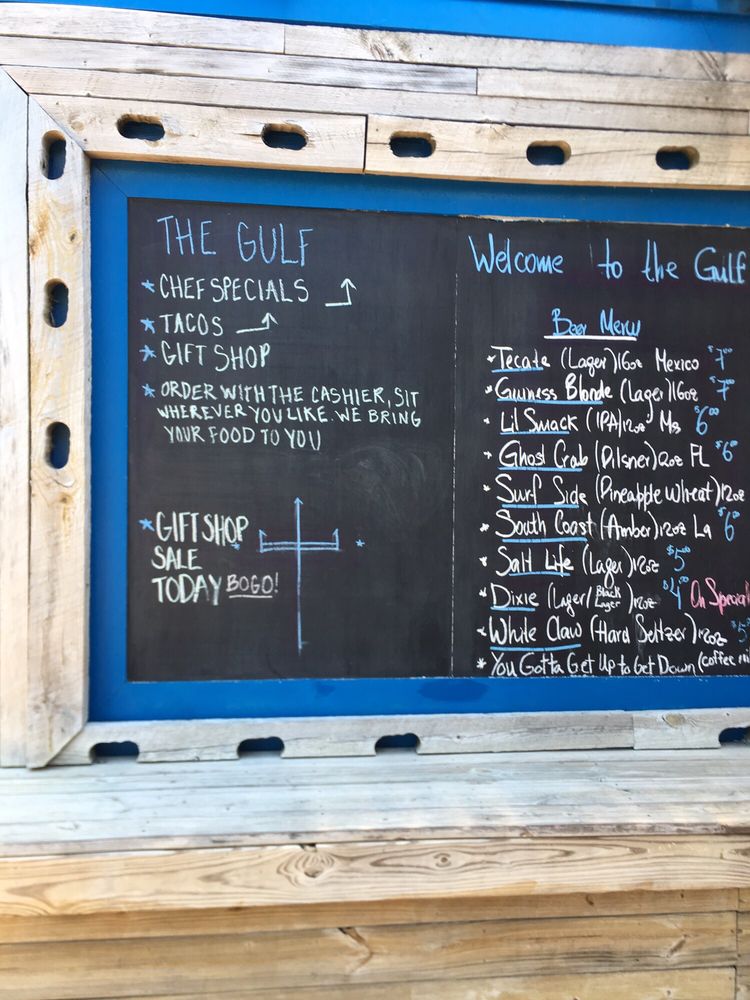 THE GULF
* CHEF SPECIALS
* TACOS
* GIFT SHOP
* ORDER WITH THE CASHIER, SIT
WHEREVER YOU LIKE. WE BRING
YOUR FOOD TO YOU
* GIFT SHOP
SALE
TODAY BOGO!
Welcome to the Gulf
Beer Menu
* Tecate (Lager) 16oz Mexico $7.00
* Guiness Blonde (Lager) 16oz $7.00
* Lil Smack (IPA) 12oz Ms $6.00
* Ghost Crab (Pilsner) 12oz FL $6
* Surf Side (Pineapple Wheat) 12oz
* South Coast (Amber) 12oz La $6
* Salt Life (Lager) 12oz $5.00
* Dixie (Lager/Black Lager) 12oz $4.00 On Special
* White Claw (Hard Seltzer) 12oz $5
* You Gotta Get Up to Get Down (coffee